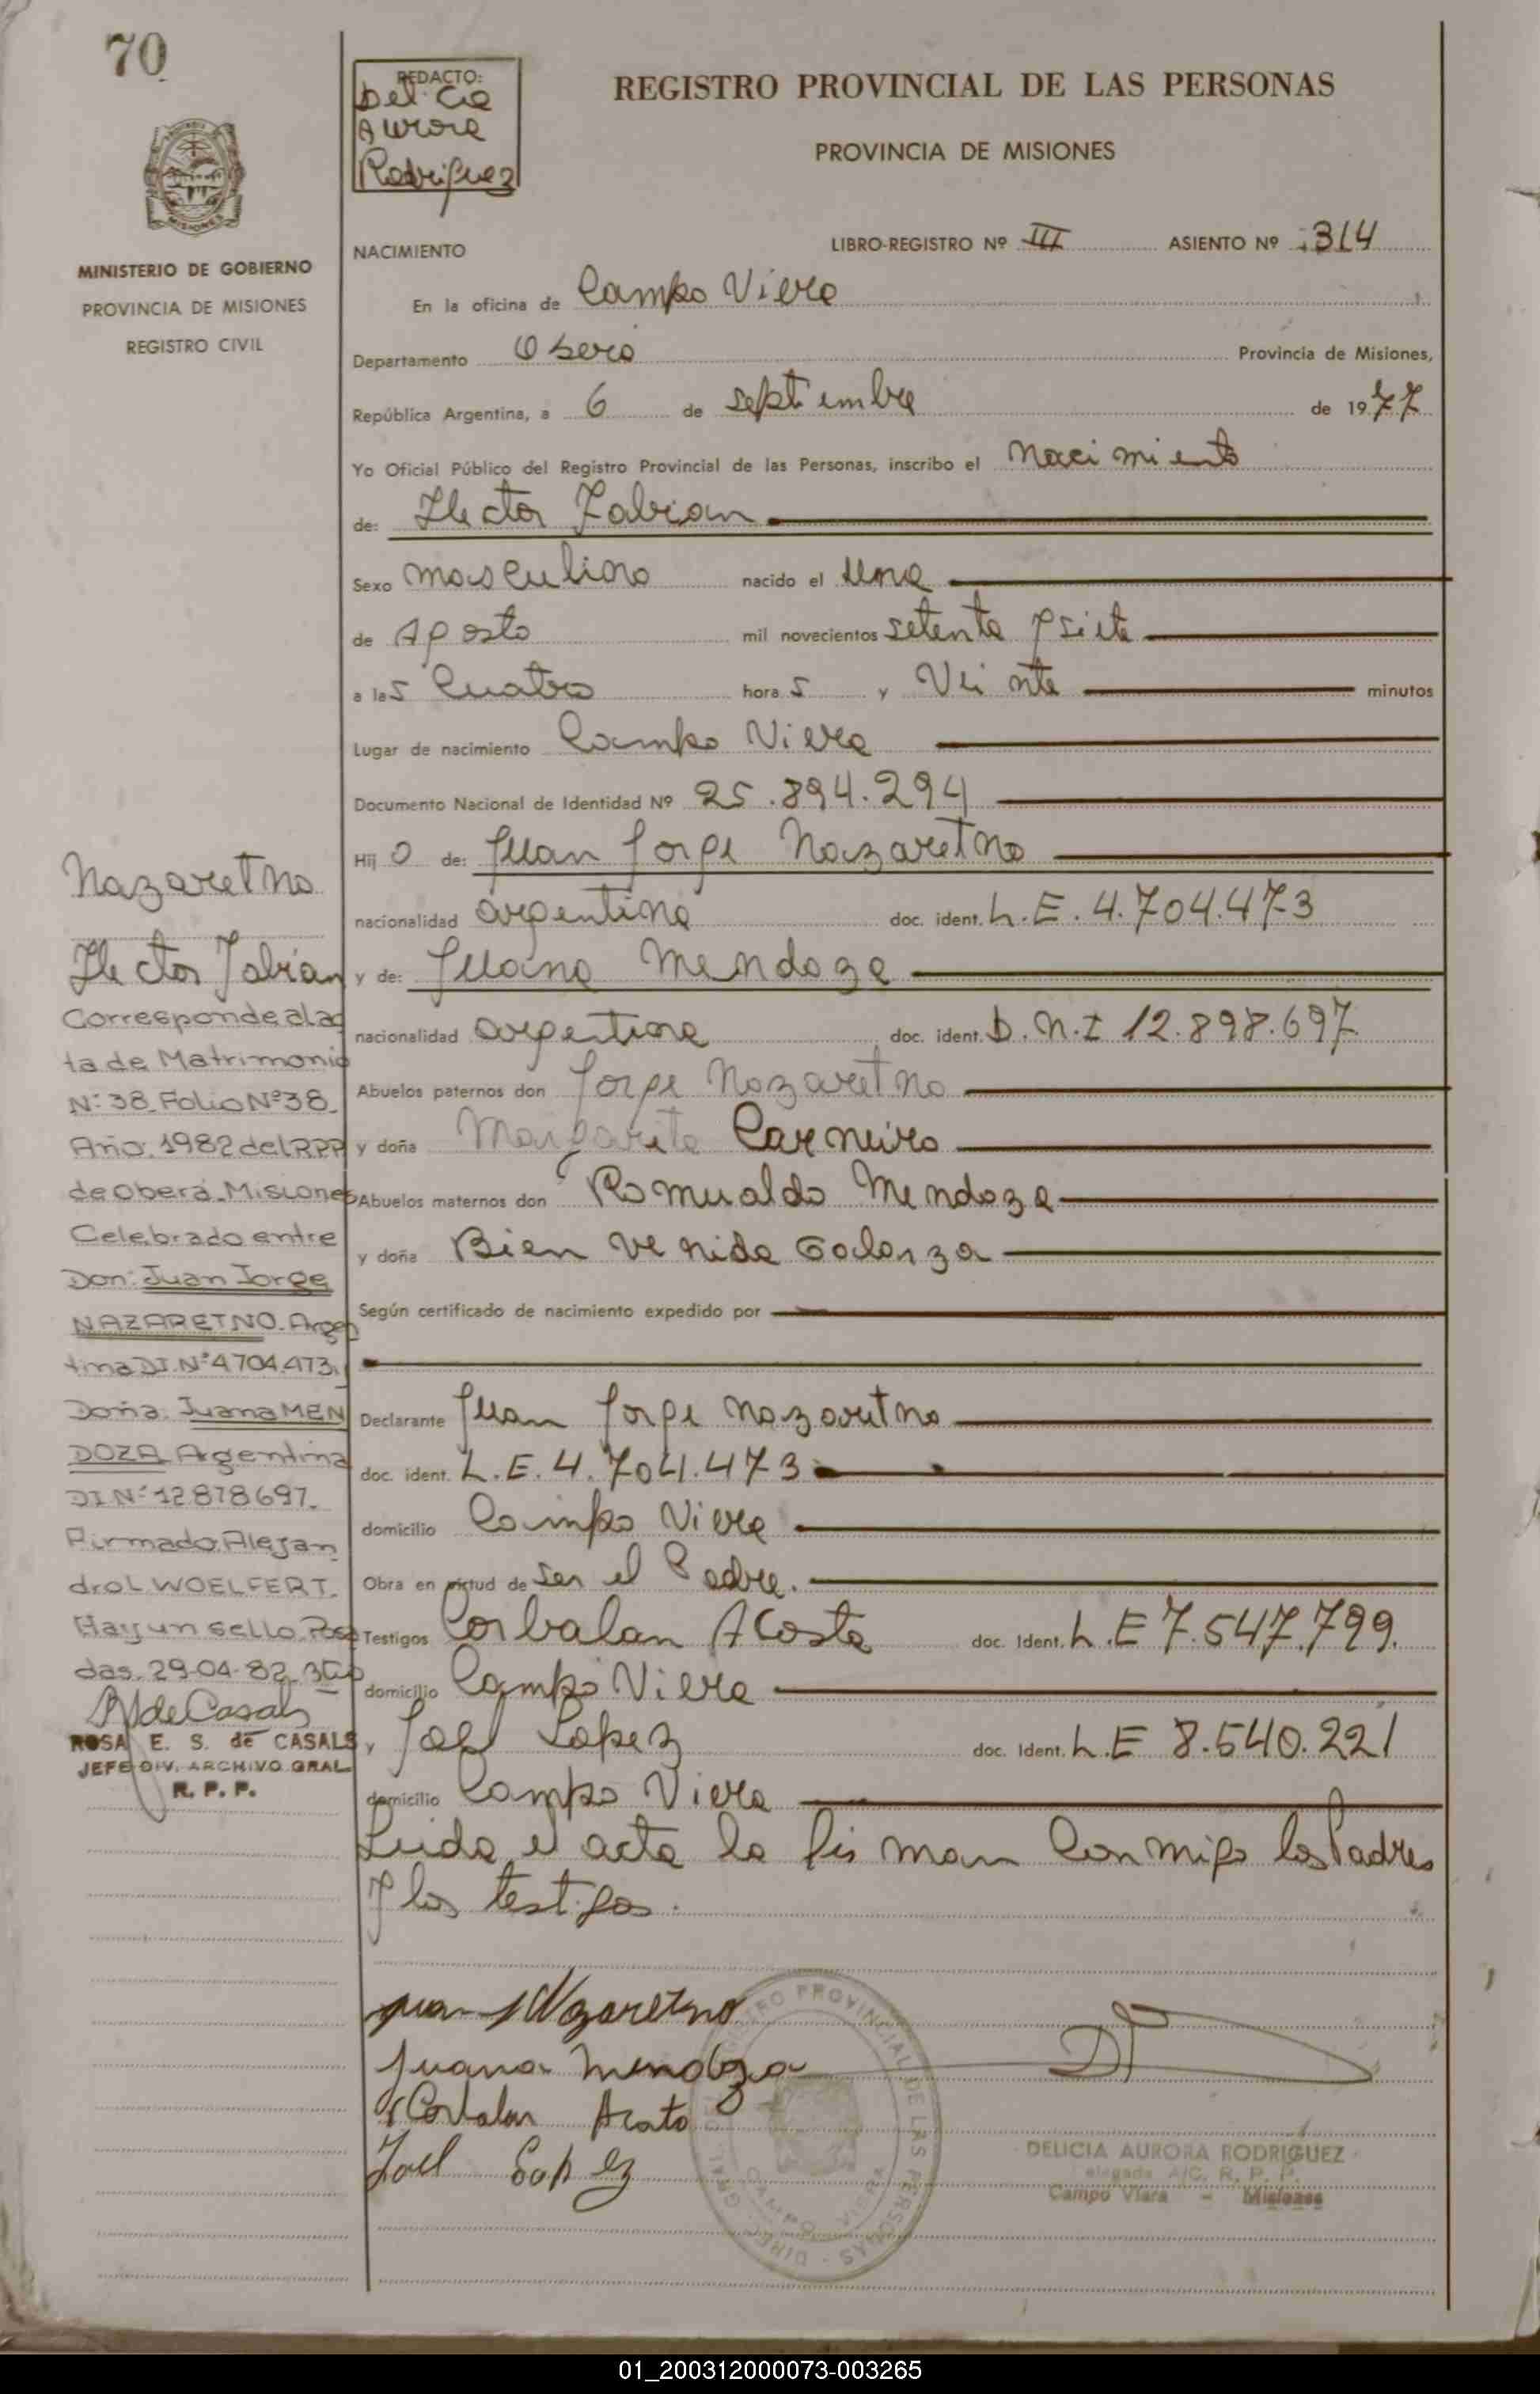 70
REDACTO:
Delicia
Aurora
Rodriguez
REGISTRO PROVINCIAL DE LAS PERSONAS
PROVINCIA DE MISIONES
MISIONES
MINISTERIO DE GOBIERNO
PROVINCIA DE MISIONES
REGISTRO CIVIL
NACIMIENTO
LIBRO-REGISTRO Nº III ASIENTO Nº 314
En la oficina de Campo Viera
Departamento Obera Provincia de Misiones,
República Argentina, a 6 de septiembre de 1977
Yo Oficial Público del Registro Provincial de las Personas, inscribo el Nacimiento
de: Hector Fabian
Sexo masculino nacido el Uno
de Agosto mil novecientos setenta y siete
a las cuatro horas y Veinte minutos
Lugar de nacimiento Campo Viera
Documento Nacional de Identidad Nº 25.894.294
Hijo de: Juan Jorge Nazaretno
nacionalidad argentina doc. ident. L.E. 4.704.473
y de: Juana Mendoza
nacionalidad argentina doc. ident. D.N.I 12.898.697
Abuelos paternos don Jorge Nazaretno
y doña Margarita Carneiro
Abuelos maternos don Romualdo Mendoza
y doña Bien Venida Galarza
Según certificado de nacimiento expedido por
Declarante Juan Jorge Nazaretno
doc. ident. L.E. 4.704.473
domicilio Campo Viera
Obra en virtud de ser el Padre.
Testigos Corbalan Acosta doc. Ident. L.E 7.547.799.
domicilio Campo Viera
y Joel Lopez doc. Ident. L.E 8.540.221
domicilio Campo Viera
Leida el acta la firman conmigo los Padres
y los testigos.
Nazaretno
Hector Fabian
Corresponde al ac
ta de Matrimonio
Nº: 38 Folio Nº 38
Año: 1982 del RPP
de Oberá. Misiones
Celebrado entre
Don: Juan Jorge
NAZARETNO. Argen
tina DI. Nº 4704.473. y
Doña: Juana MEN
DOZA Argentina
DI Nº 12878697.
Firmado. Alejan
dro L WOELFERT.
Hay un sello. Posa
das. 29-04-82
R de Casals
ROSA E. S. de CASALS
JEFE DIV. ARCHIVO GRAL
R. P. P.
Juan J Nazaretno
Juana Mendoza
Corbalan Acosta
Joel Lopez
REGISTRO PROVINCIAL DE LAS PERSONAS
CAMPO VIERA
DELICIA AURORA RODRIGUEZ
elegada A/C. R. P. P.
Campo Viera - Misiones
01_200312000073-003265